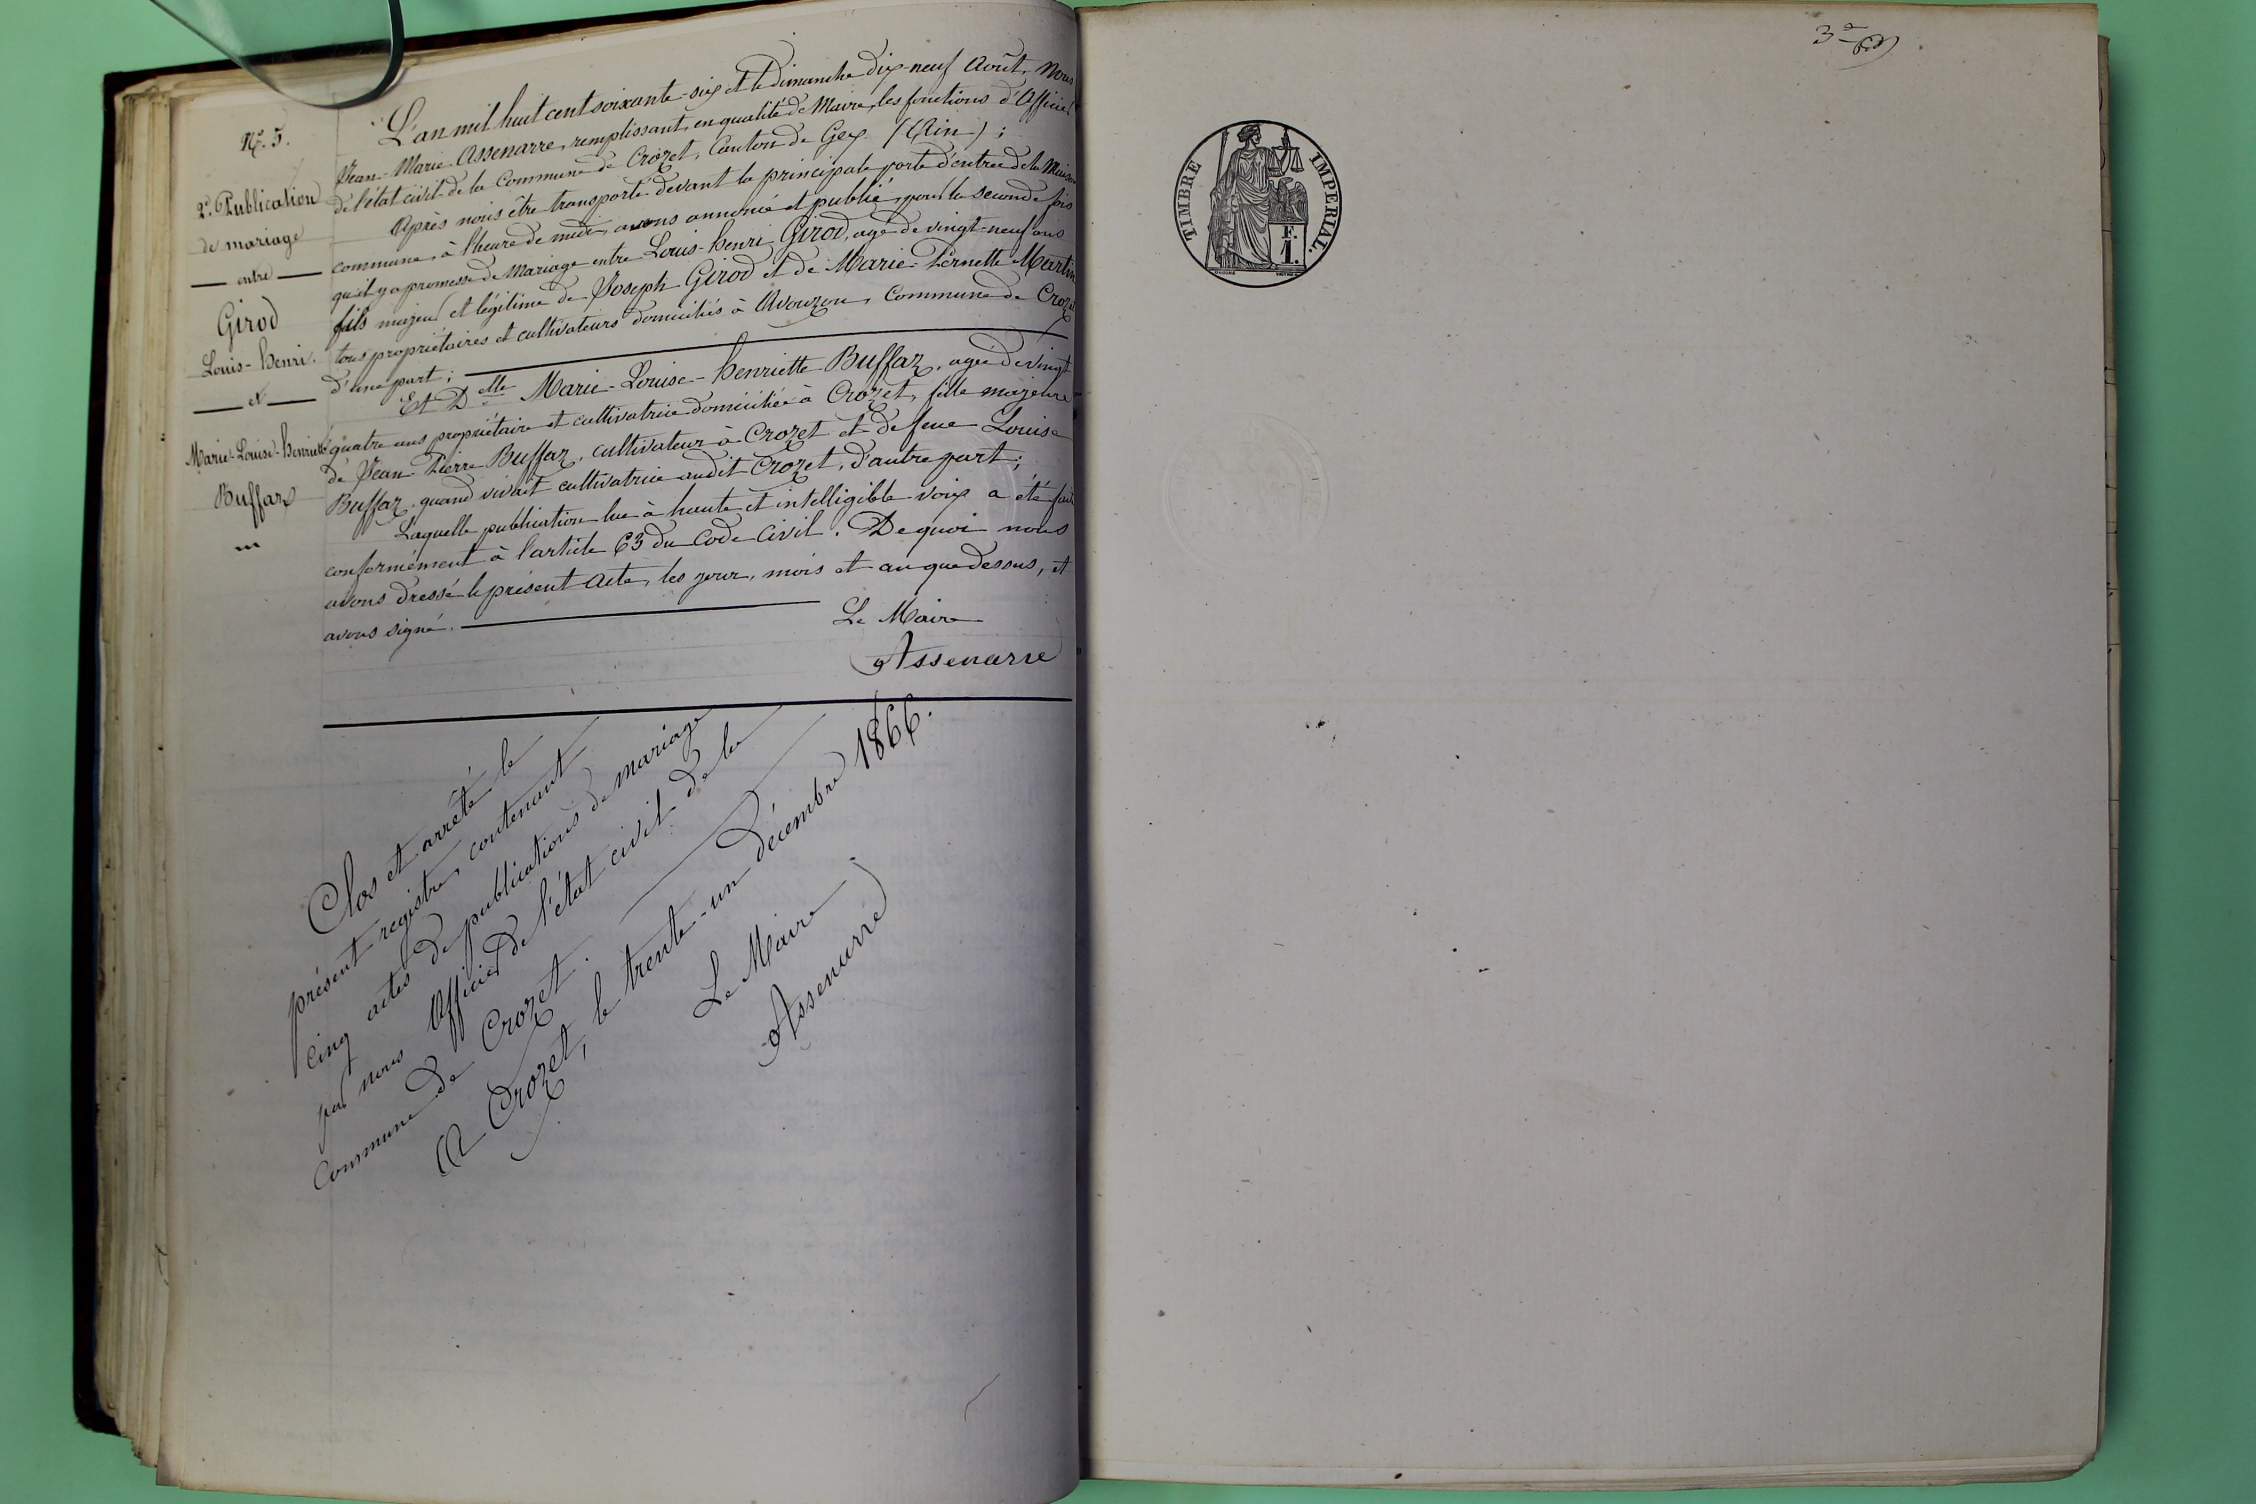 N.° 5.
2.e Publication
de mariage
entre
Girod
Louis-henri.
et
Marie-Louise-henriette
Buffaz
L'an mil huit cent soixante-six et le Dimanche dix-neuf Août, Nous
Jean-Marie Assenarre, remplissant, en qualité de Maire, les fonctions d'Officier
de l'état civil de la Commune de Crozet, Canton de Gex (Ain);
Après nous être transporté devant la principale porte d'entrée de la Maison
commune, à l'heure de midi, avons annoncé et publié, pour la seconde fois
qu'il y a promesse de Mariage entre Louis-henri Girod, agé de vingt-neuf ans
fils majeur et légitime de Joseph Girod et de Marie-Pernette Martin
tous propriétaires et cultivateurs domiciliés à Avouzon, Commune de Crozet
d'une part;
Et D.elle Marie-Louise-henriette Buffaz, agée de vingt
quatre ans propriétaire et cultivatrice domiciliée à Crozet, fille majeure
de Jean-Pierre Buffaz, cultivateur à Crozet et de feue Louise
Buffaz, quand vivait cultivatrice audit Crozet, d'autre part;
Laquelle publication lue à haute et intelligible voix a été faite
conformément à l'article 63 du Code Civil. De quoi nous
avons dressé le présent Acte, les jour, mois et an que dessus, et
avons signé.
Le Maire
Assenarre
Clos et arrêté le
présent registre, contenant
cinq actes de publications de mariage
par nous Officier de l'état civil de la
Commune de Crozet.
A Crozet, le trente-un décembre 1866.
Le Maire
Assenarre
TIMBRE IMPERIAL.
F.
1.